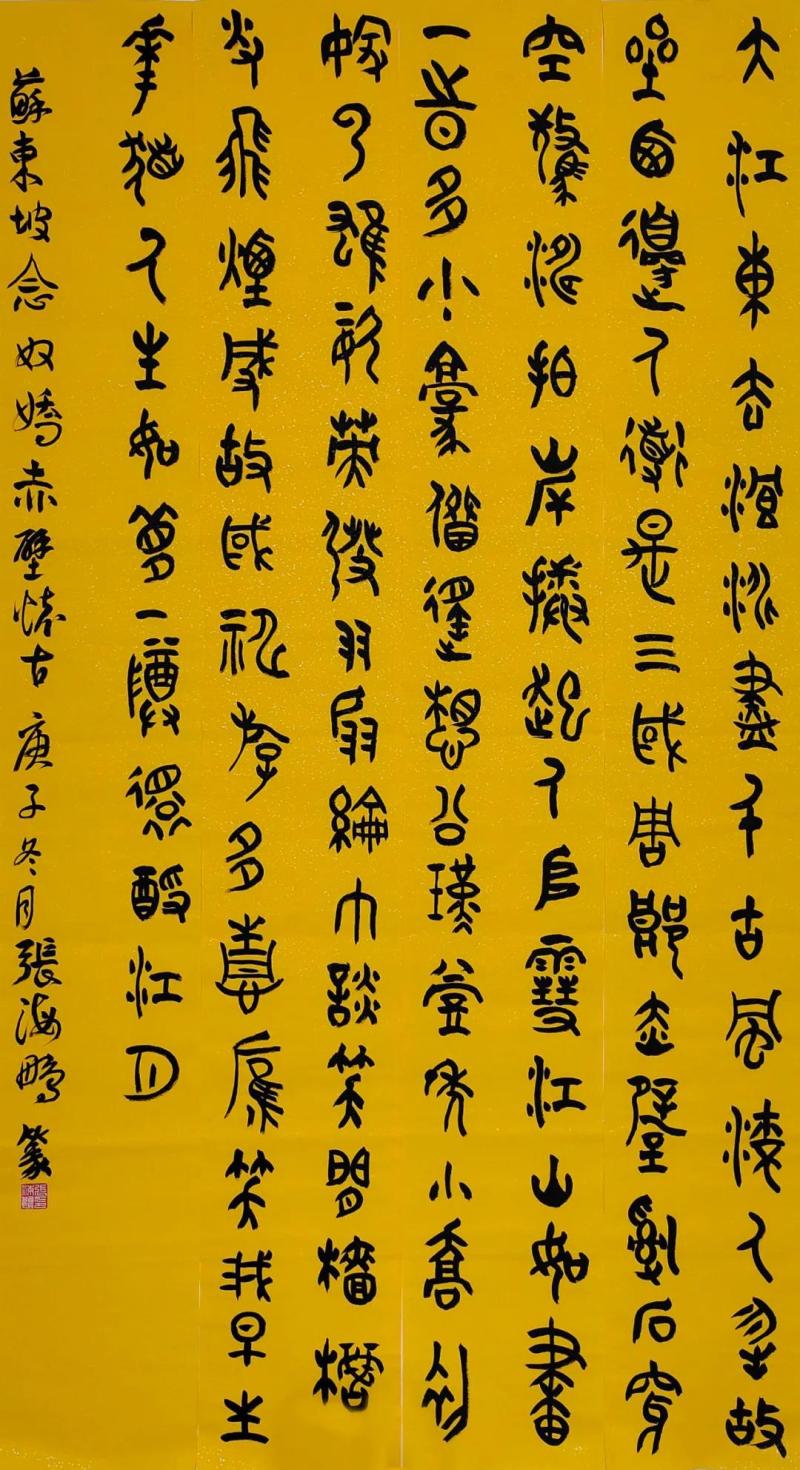 大江東去浪淘盡千古風流人物故
壘西邊人道是三國周郎赤壁亂石穿
空驚濤拍岸捲起千堆雪江山如畫
一時多少豪傑遙想公瑾當年小喬初
嫁了雄姿英發羽扇綸巾談笑間檣櫓
灰飛煙滅故國神游多情應笑我早生
華髮人生如夢一尊還酹江月
蘇東坡念奴嬌赤壁懷古庚子冬月張海鵬篆